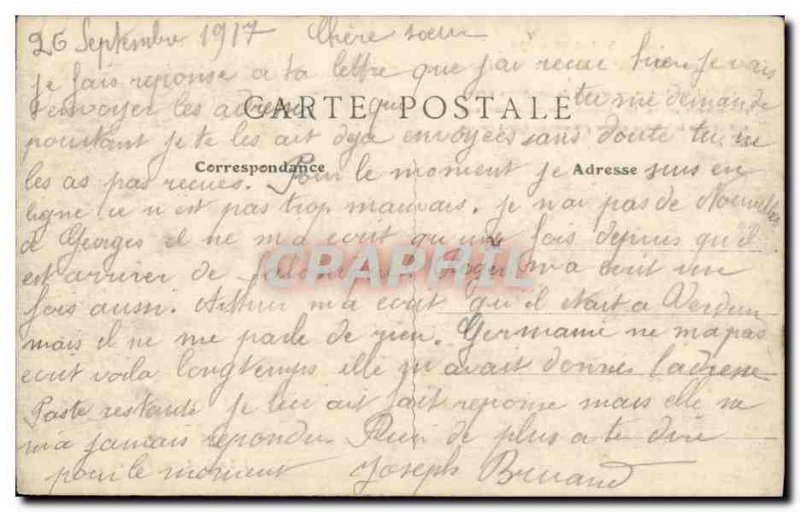 26 Septembre 1917 Chère sœur
je fais reponse a ta lettre que j'ai recue hier je vais
t envoyer les adresses que tu me demande
CARTE POSTALE
pourtant je te les ait deja envoyées sans doute tu ne
Correspondance
Adresse
les as pas recues. Pour le moment je suis en
ligne ce n est pas trop mauvais. je n'ai pas de Nouvelles
de Georges il ne m'a ecrit qu une fois depuis qu'il
est arriver de Roger m'a ecrit une
CPAPHIL
fois aussi. Arthur m'a ecrit qu'il etait a Verdun
mais il ne me parle de rien. Germaine ne m'a pas
ecrit voila longtemps elle m'avait donner l'adresse
Poste restante je lui ait fait reponse mais elle ne
m'a jamais repondu. Rien de plus a te dire
pour le moment Joseph Bruand